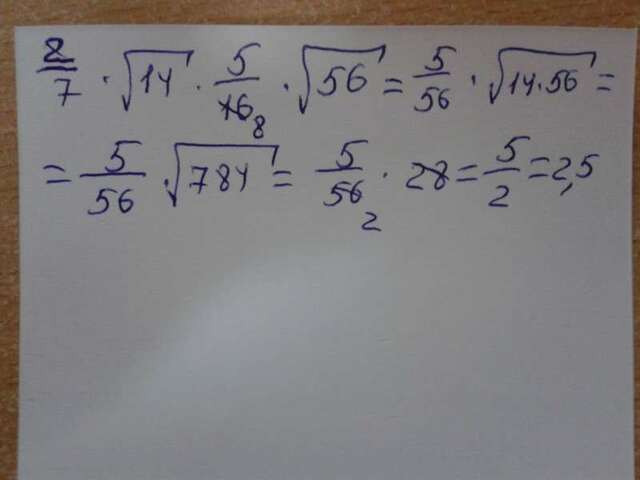 2/7 · √14 · 5/16 8 · √56 = 5/56 · √14.56 =
= 5/56 · √784 = 5/56 2 · 28 = 5/2 = 2,5